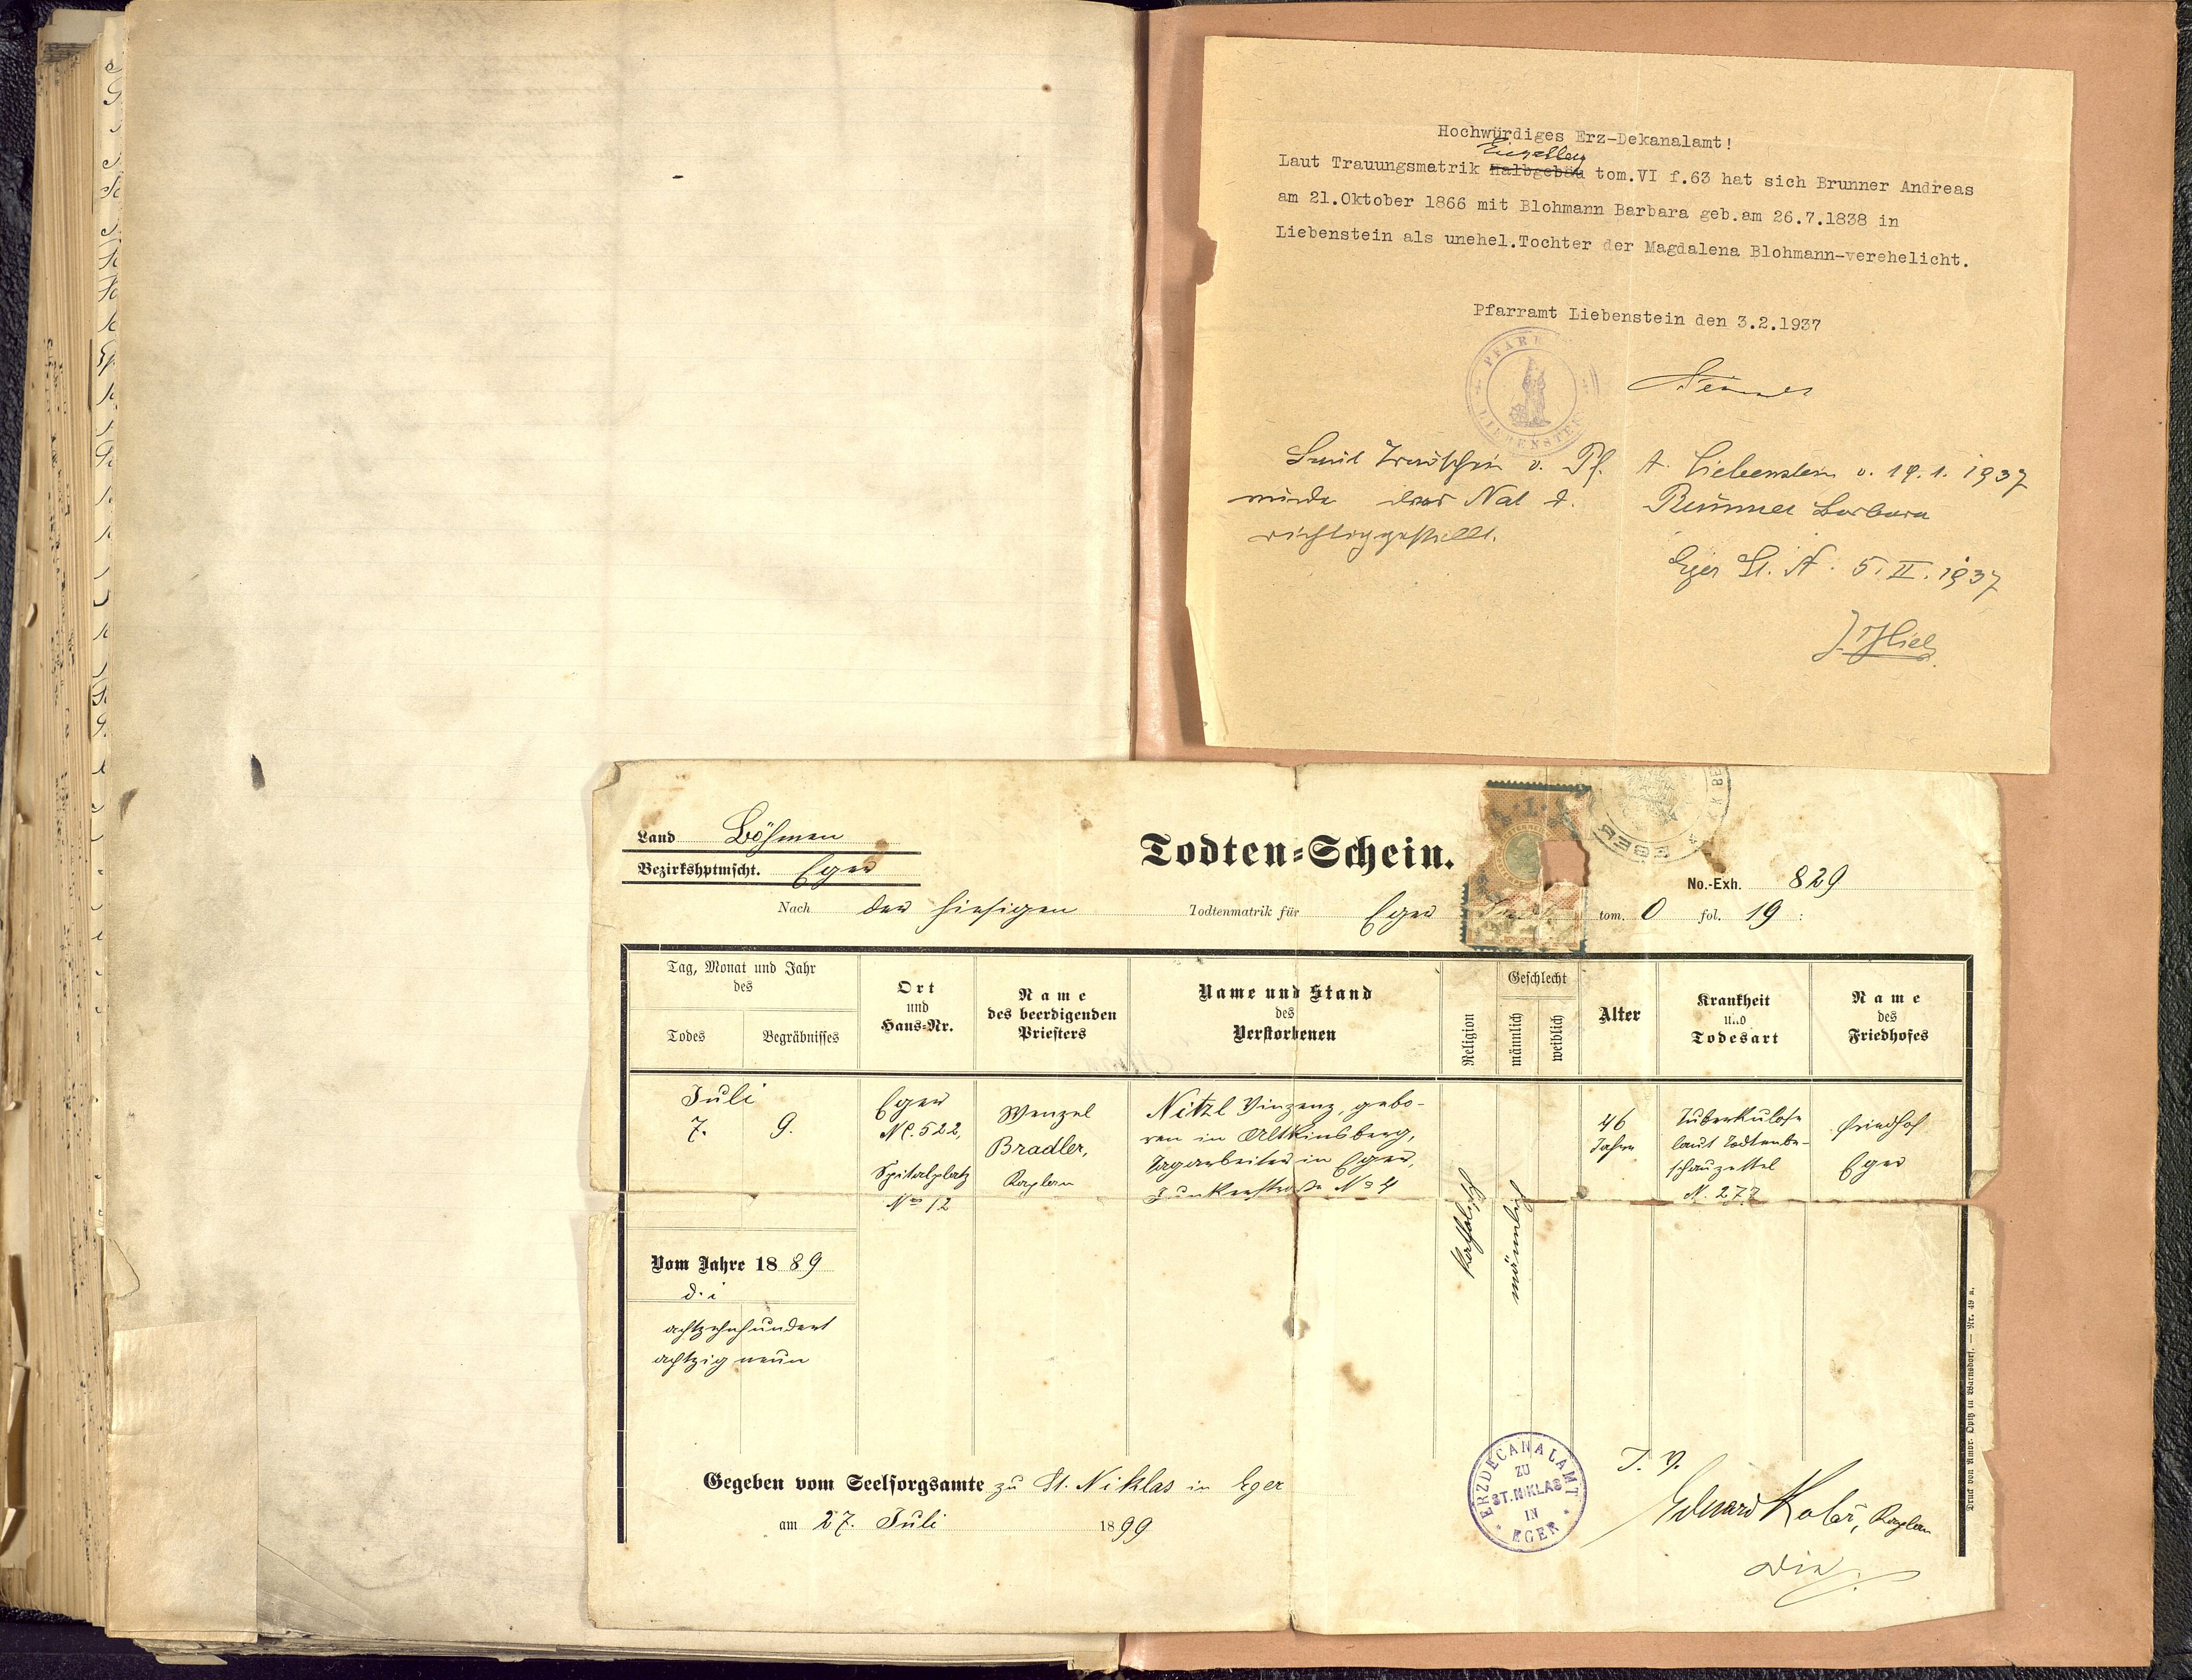 Hochwürdiges Erz-Dekanalamt!
Laut Trauungsmatrik Halbgebäu tom.VI f.63 hat sich Brunner Andreas
am 21.Oktober 1866 mit Blohmann Barbara geb.am 26.7.1838 in
Liebenstein als unehel.Tochter der Magdalena Blohmann-verehelicht.
Pfarramt Liebenstein den 3.2.1937
LIEBENSTEIN
Laut Trauschein v. Pf. A. Liebenstein v. 19.1.1937
wurde das Nat d. Brunner Barbara
richtiggestellt.
Eger St. N. 5.II.1937
Land Böhmen
Bezirkshptmscht. Eger
Todten-Schein.
EGER
No.-Exh. 829
Nach der hiesigen Todtenmatrik für Eger tom. O fol. 19 :
Tag, Monat und Jahr
des
Todes
Begräbnisses
Ort
und
Haus-Nr.
Name
des beerdigenden
Priesters
Name und Stand
des
Verstorbenen
Religion
Geschlecht
männlich
weiblich
Alter
Krankheit
und
Todesart
Name
des
Friedhofes
Juli
7. 9.
Eger
NC. 522,
Spitalplatz
No 12
Wenzel
Bradler,
Kaplan
Nitzl Vinzenz, gebo-
ren in Altkinsberg,
Tagarbeiter in Eger,
Junkerstraße No 4
katholisch
männlich
46
Jahre
Tuberkulose
laut Todtenbe-
schauzettel
N. 277
Friedhof
Eger
Vom Jahre 1889
d. i
achtzehnhundert
achtzig neun
Gegeben vom Seelsorgsamte zu St. Niklas in Eger
am 27. Juli 1899
ERZDECANALAMT
ZU
ST. NIKLAS
IN
EGER
Eduard Kolář, Kaplan
Druck von Ambr. Opitz in Warnsdorf. — Nr. 49 a.